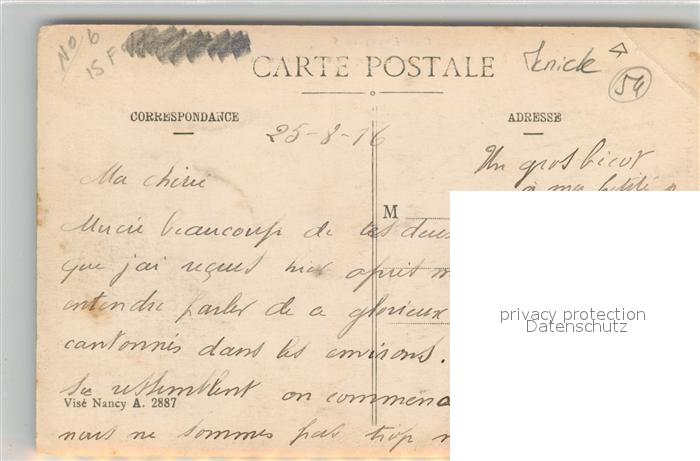 No 6
15 F
CARTE POSTALE
Knick
54
CORRESPONDANCE
ADRESSE
25-8-16
Un gros bicot
à ma petite
Ma chérie
M
Merci beaucoup de tes deux
que j'ai reçues hier après m
entendre parler de ce glorieux
cantonnés dans les environs.
se ressemblent on commen
Visé Nancy A. 2887
nous ne sommes pas trop
privacy protection
Datenschutz